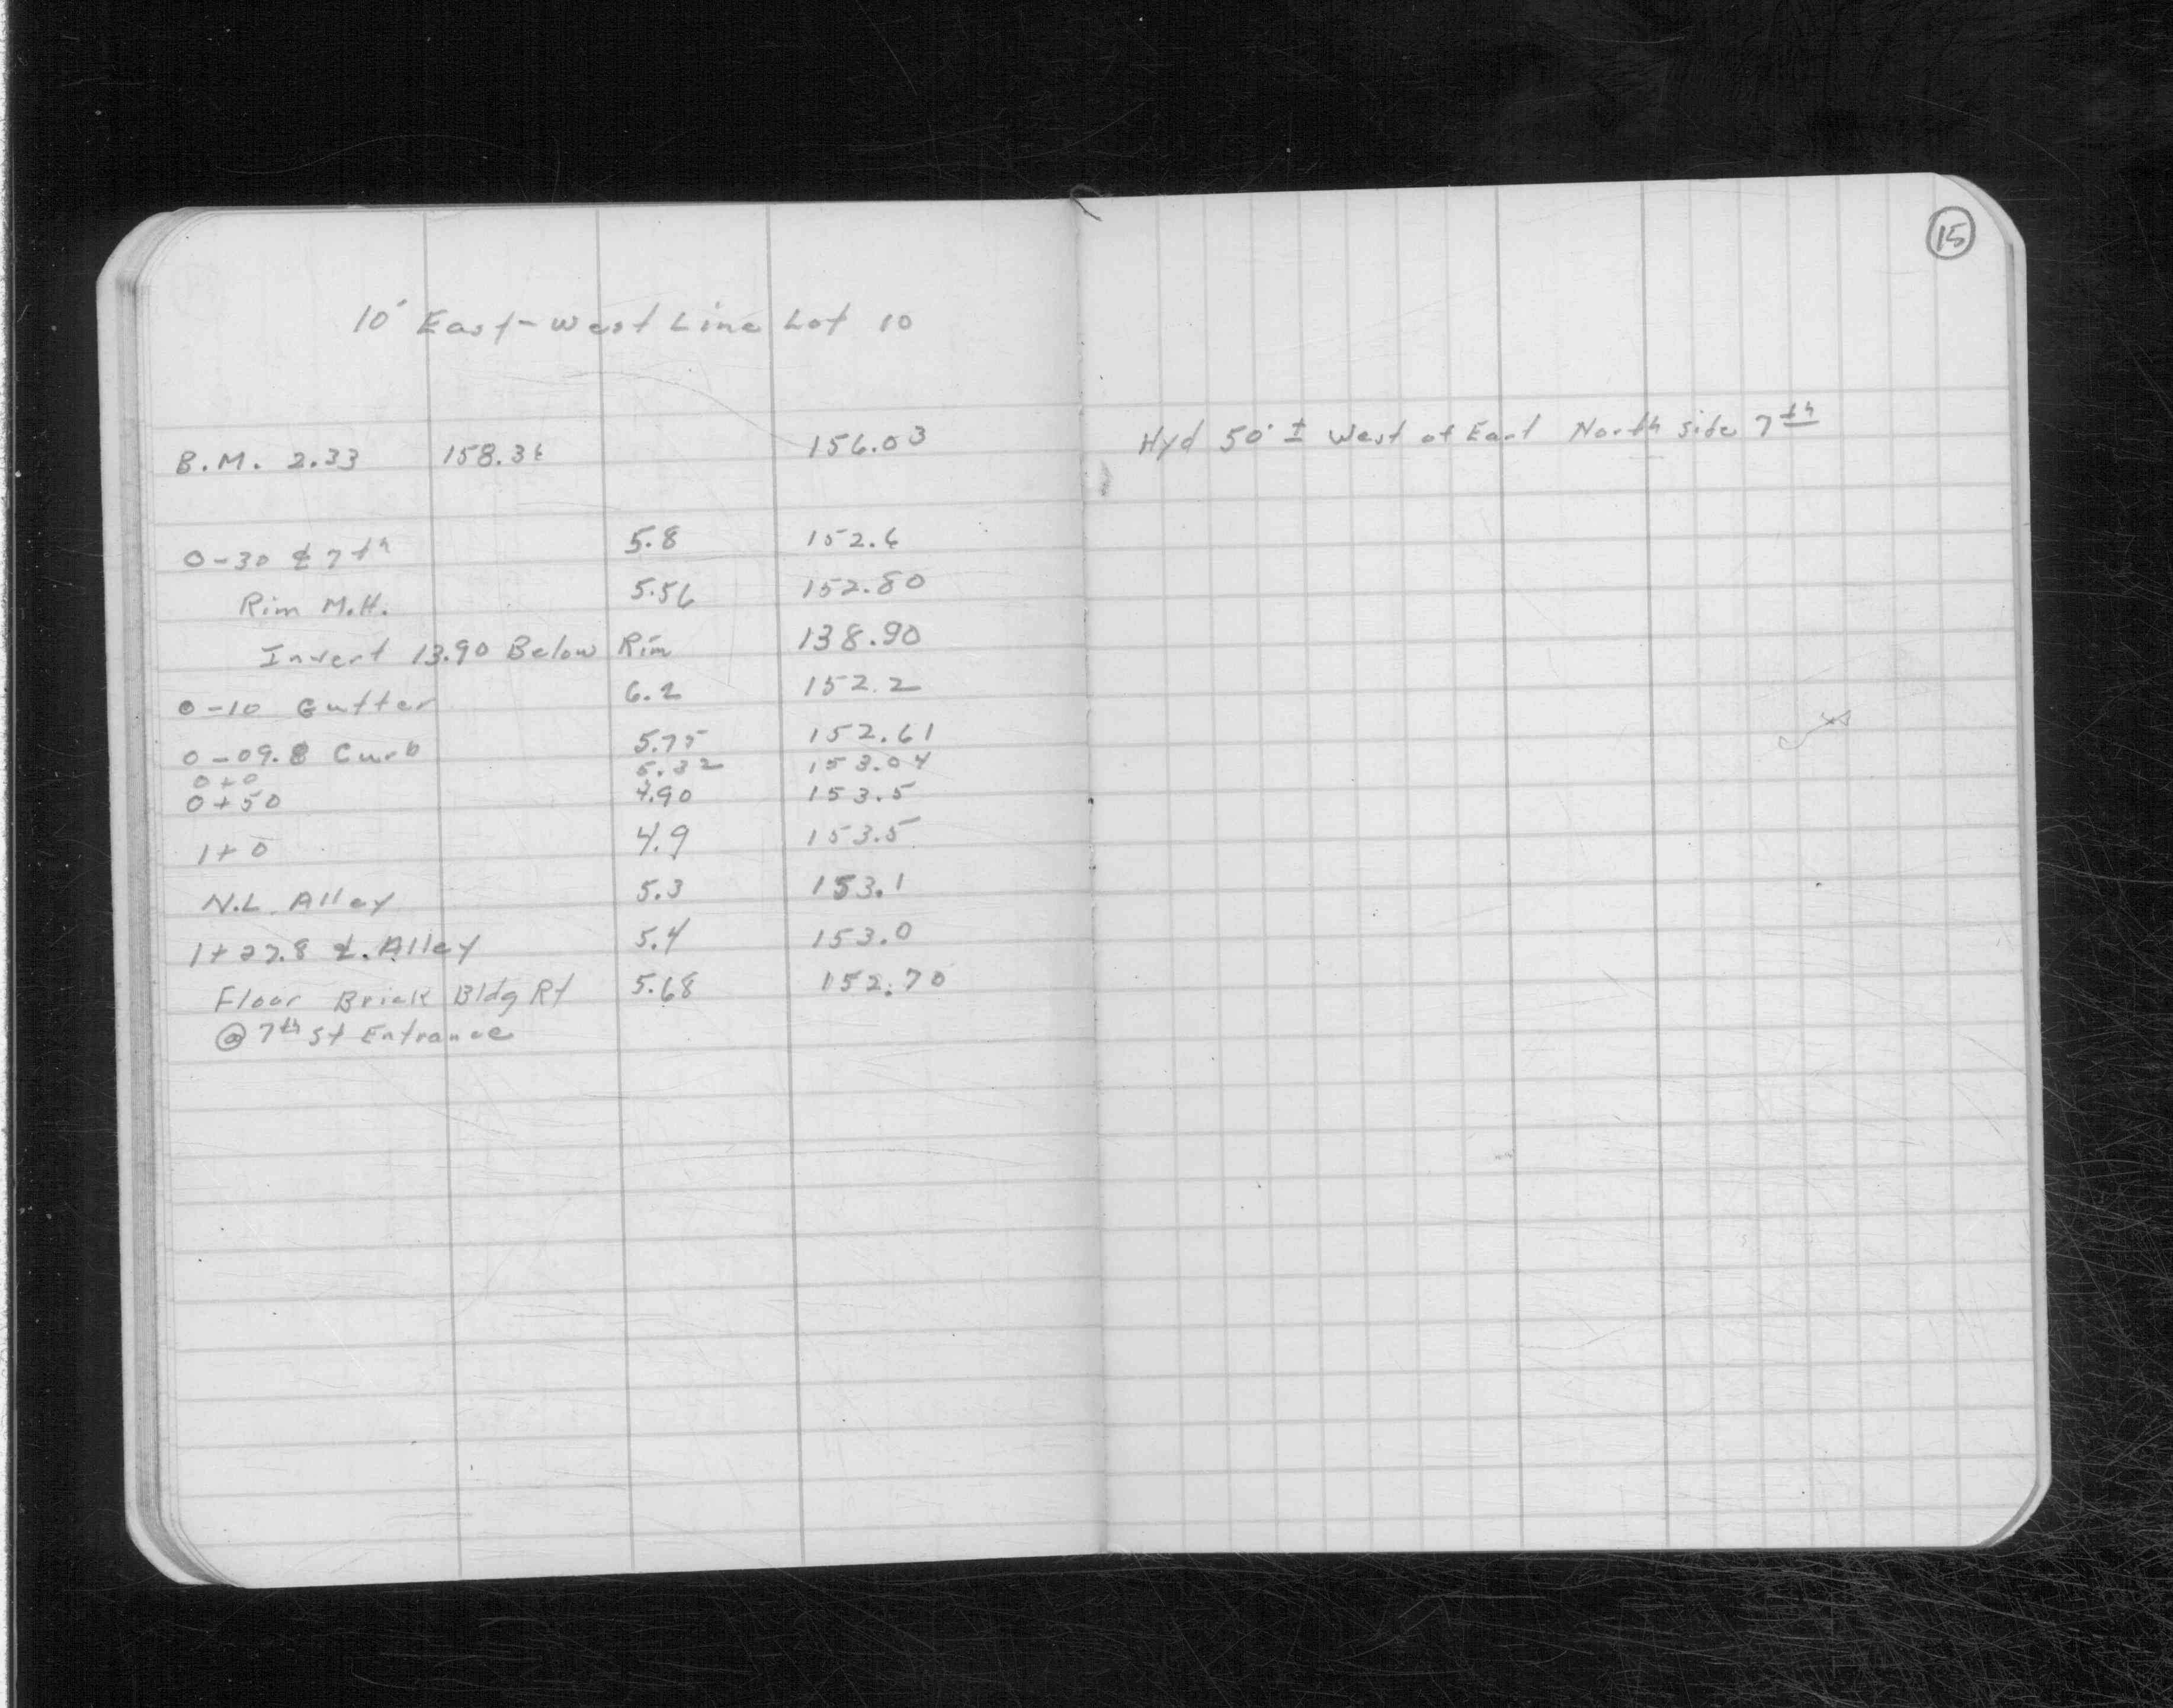 15
10' East-West Line Lot 10
B.M. 2.33 158.36 156.03 Hyd 50' ± West of East North Side 7th
0-30 ℄ 7th 5.8 152.6
Rim M.H. 5.56 152.80
Invert 13.90 Below Rim 138.90
0-10 Gutter 6.2 152.2
0-09.8 Curb 5.75 152.61
0+0 5.32 153.04
0+50 4.90 153.5
1+0 4.9 153.5
N.L. Alley 5.3 153.1
1+27.8 ℄. Alley 5.4 153.0
Floor Brick Bldg Rt 5.68 152.70
@ 7th St Entrance